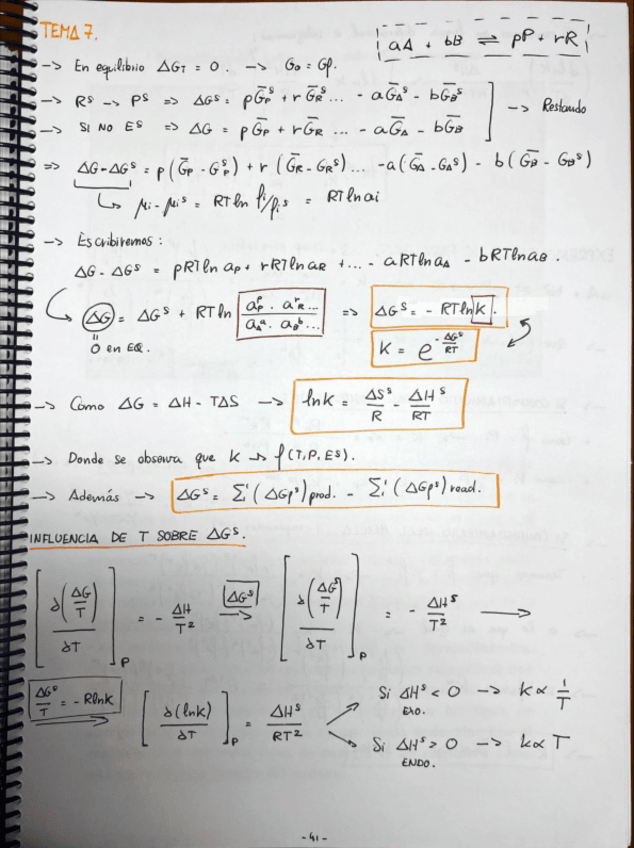 TEMA 7.
aA + bB ⇌ pP + rR
→ En equilibrio ΔG_T = 0. → G₀ = Gf.
→ Rˢ → Pˢ ⇒ ΔGˢ = pḠ_Pˢ + rḠ_Rˢ ... - aḠ_Aˢ - bḠ_Bˢ
→ SI NO ES ⇒ ΔG = pḠ_P + rḠ_R ... - aḠ_A - bḠ_B
→ Restando
⇒ ΔG - ΔGˢ = p(Ḡ_P - G_Pˢ) + r(Ḡ_R - G_Rˢ)... - a(Ḡ_A - G_Aˢ) - b(Ḡ_B - G_Bˢ)
↳ μi - μiˢ = RT ln fi/fiˢ = RT ln ai
→ Escribiremos:
ΔG - ΔGˢ = pRT ln a_P + rRT ln a_R + ... - aRT ln a_A - bRT ln a_B.
ΔG = ΔGˢ + RT ln (a_P^p · a_R^r ...)/(a_A^a · a_B^b ...) ⇒ ΔGˢ = - RT ln K.
0 en EQ.
K = e^(-ΔGˢ/RT)
→ Como ΔG = ΔH - TΔS → ln K = ΔSˢ/R - ΔHˢ/RT
→ Donde se observa que K → f(T, P, ES).
→ Además → ΔGˢ = Σ(ΔGfˢ)prod. - Σ(ΔGfˢ)react.
INFLUENCIA DE T SOBRE ΔGˢ.
[∂(ΔG/T)/∂T]_P = - ΔH/T² ΔGˢ → [∂(ΔGˢ/T)/∂T]_P = - ΔHˢ/T² →
ΔGˢ/T = -R ln K → [∂(ln K)/∂T]_P = ΔHˢ/RT²
Si ΔHˢ < 0 → K ∝ 1/T
EXO.
Si ΔHˢ > 0 → K ∝ T
ENDO.
- 41 -